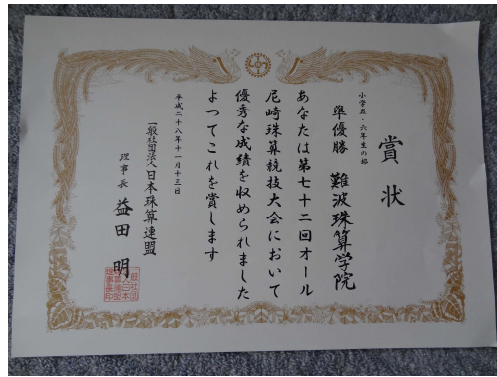 賞状
小学五・六年生の部
準優勝 難波珠算学院
あなたは第七十二回オール
尼崎珠算競技大会において
優秀な成績を収められました
よつてこれを賞します
平成二十八年十一月十三日
一般社団法人日本珠算連盟
理事長 益田 明